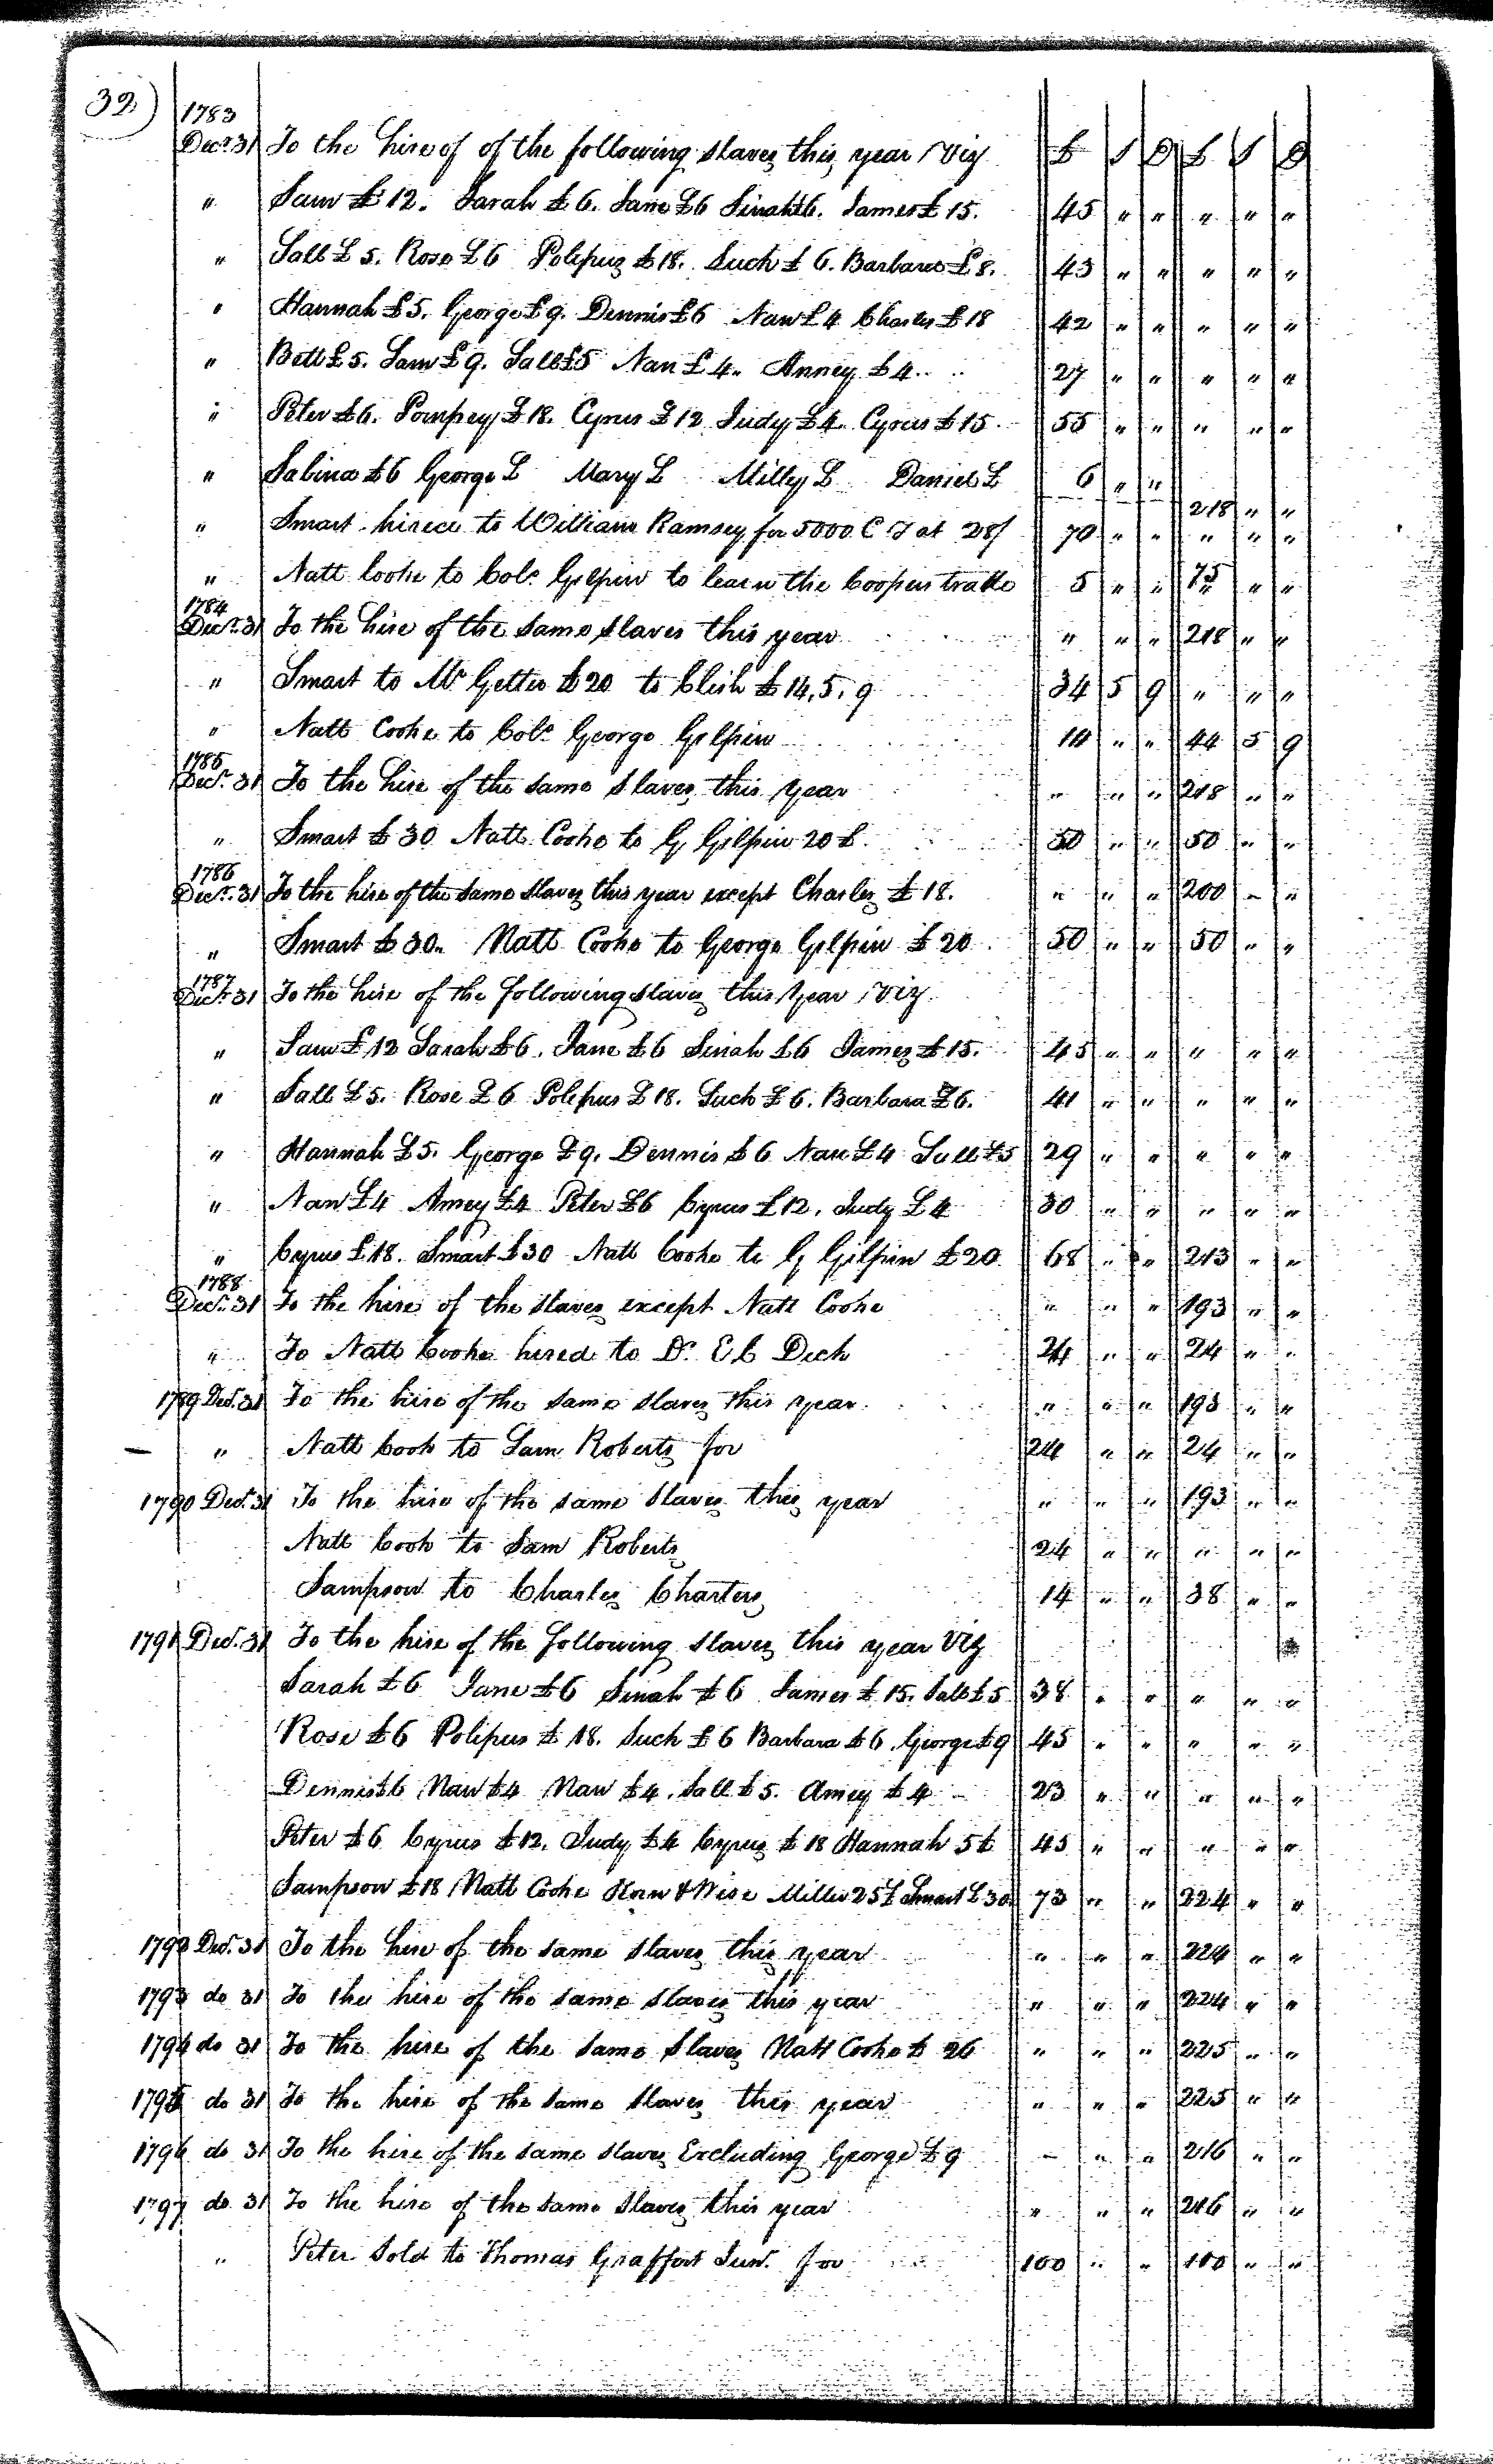 32)
1783
Decr. 31 To the hire of of the following slaves this year Viz £ S D £ S D
" Sam £12. Sarah £6. Jane £6 Sinah £6. James £15. 45 " " " " "
" Sall £5. Rose £6 Polipus £18. Such £6. Barbara £8. 43 " " " " "
" Hannah £5. George £9. Dennis £6 Nan £4 Charles £18 42 " " " " "
" Bett £5. Sam £9. Sall £5 Nan £4. Anney £4. 27 " " " " "
" Peter £6. Pompey £18. Cyrus £12. Judy £4. Cyrus £15. 55 " " " " "
" Sabina £6 George £ Mary £ Milley £ Daniel £ 6 " " 218 " "
" Smart hired to William Ramsey for 5000 C T at 28/ 70 " " " " "
" Natt Cooke to Colo. Gilpin to learn the Coopers trade 5 " " 75 " "
1784
Decr. 31 To the hire of the same slaves this year " " " 218 " "
" Smart to Mr Getter £20 to Clish £14,5,9 34 5 9 " " "
" Natt Cooke to Colo. George Gilpin 10 " " 44 5 9
1785
Decr. 31 To the hire of the same slaves this year " " " 218 " "
" Smart £30 Natt Cooke to G Gilpin 20£. 50 " " 50 " "
1786
Decr. 31 To the hire of the same slaves this year except Charles £18. " " " 200 " "
" Smart £30. Natt Cooke to George Gilpin £20. 50 " " 50 " "
1787
Decr. 31 To the hire of the following slaves this year Viz.
" Sam £12 Sarah £6. Jane £6 Sinah £6 James £15. 45 " " " " "
" Sall £5. Rose £6 Polipus £18. Such £6. Barbara £6. 41 " " " " "
" Hannah £5. George £9. Dennis £6 Nan £4 Sall £5 29 " " " " "
" Nan £4 Amey £4 Peter £6 Cyrus £12. Judy £4 30 " " " " "
" Cyrus £18. Smart £30 Natt Cooke to G Gilpin £20. 68 " " 213 " "
1788
Decr. 31 To the hire of the slaves except Natt Cooke " " " 193 " "
" To Natt Cooke hired to Dr. E C Dick 24 " " 24 " "
1789 Decr. 31 To the hire of the same slaves this year. " " " 193 " "
" Natt Cook to Sam Roberts for 24 " " 24 " "
1790 Decr. 31 To the hire of the same slaves this year " " " 193 " "
Natt Cook to Sam Roberts 24 " " " " "
Sampson to Charles Charters 14 " " 38 " "
1791 Decr. 31 To the hire of the following slaves this year Viz
Sarah £6 Jane £6 Sinah £6 James £15. Sall £5 38 " " " " "
Rose £6 Polipus £18. Such £6 Barbara £6. George £9 45 " " " " "
Dennis £6 Nan £4 Nan £4. Sall £5. Amey £4 23 " " " " "
Peter £6 Cyrus £12. Judy £4 Cyrus £18 Hannah 5£ 45 " " " " "
Sampson £18 Natt Cooke Horn & Wise Miller 25£ Smart £30 73 " " 224 " "
1792 Decr. 31 To the hire of the same slaves this year " " " 224 " "
1793 do 31 To the hire of the same slaves this year " " " 224 " "
1794 do 31 To the hire of the same slaves Natt Cooke £26 " " " 225 " "
1795 do 31 To the hire of the same slaves this year " " " 225 " "
1796 do 31 To the hire of the same slaves Excluding George £9 " " " 216 " "
1797 do 31 To the hire of the same slaves this year " " " 216 " "
" Peter Sold to Thomas Graffort Junr. for 100 " " 100 " "